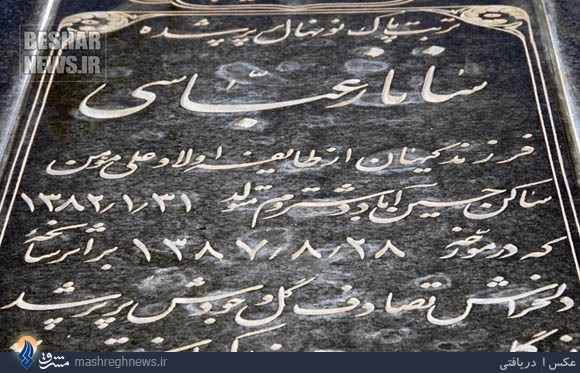 BESHAR
NEWS.IR
تربت پاک نونهال پرپر شده
ساناز عباسی
فرزند کمینان از طایفه اولاد علی مؤمن
ساکن حسین آباد دشتروم متولد ۱۳۸۲/۱/۳۱
که در مورخه ۱۳۸۷/۸/۲۸ بر اثر سانحهٔ
دلخراش تصادف گل وجودش پرپر شد
مشرق mashreghnews.ir
عکس | دریافتی